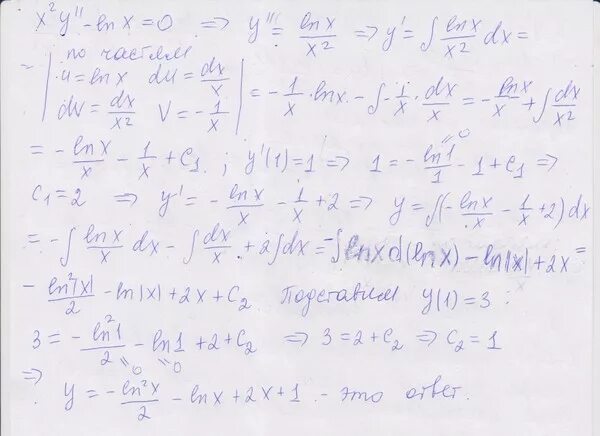 x²y'' - ln x = 0 ⇒ y'' = ln x / x² ⇒ y' = ∫ ln x / x² dx =
= | по частям u = ln x du = dx/x dV = dx/x² V = -1/x | = -1/x · ln x - ∫ -1/x · dx/x = -ln x / x + ∫ dx/x²
= -ln x / x - 1/x + C₁ ; y'(1) = 1 ⇒ 1 = -ln 1 / 1 - 1 + C₁ ⇒ = 0
C₁ = 2 ⇒ y' = -ln x / x - 1/x + 2 ⇒ y = ∫(-ln x / x - 1/x + 2) dx
= -∫ ln x / x dx - ∫ dx/x + 2∫dx = -∫ ln x d(ln x) - ln|x| + 2x =
-ln²|x| / 2 - ln|x| + 2x + C₂ Подставим y(1) = 3 :
3 = -ln²1 / 2 - ln 1 + 2 + C₂ ⇒ 3 = 2 + C₂ ⇒ C₂ = 1
= 0 = 0
⇒ y = -ln²x / 2 - ln x + 2x + 1 - это ответ.